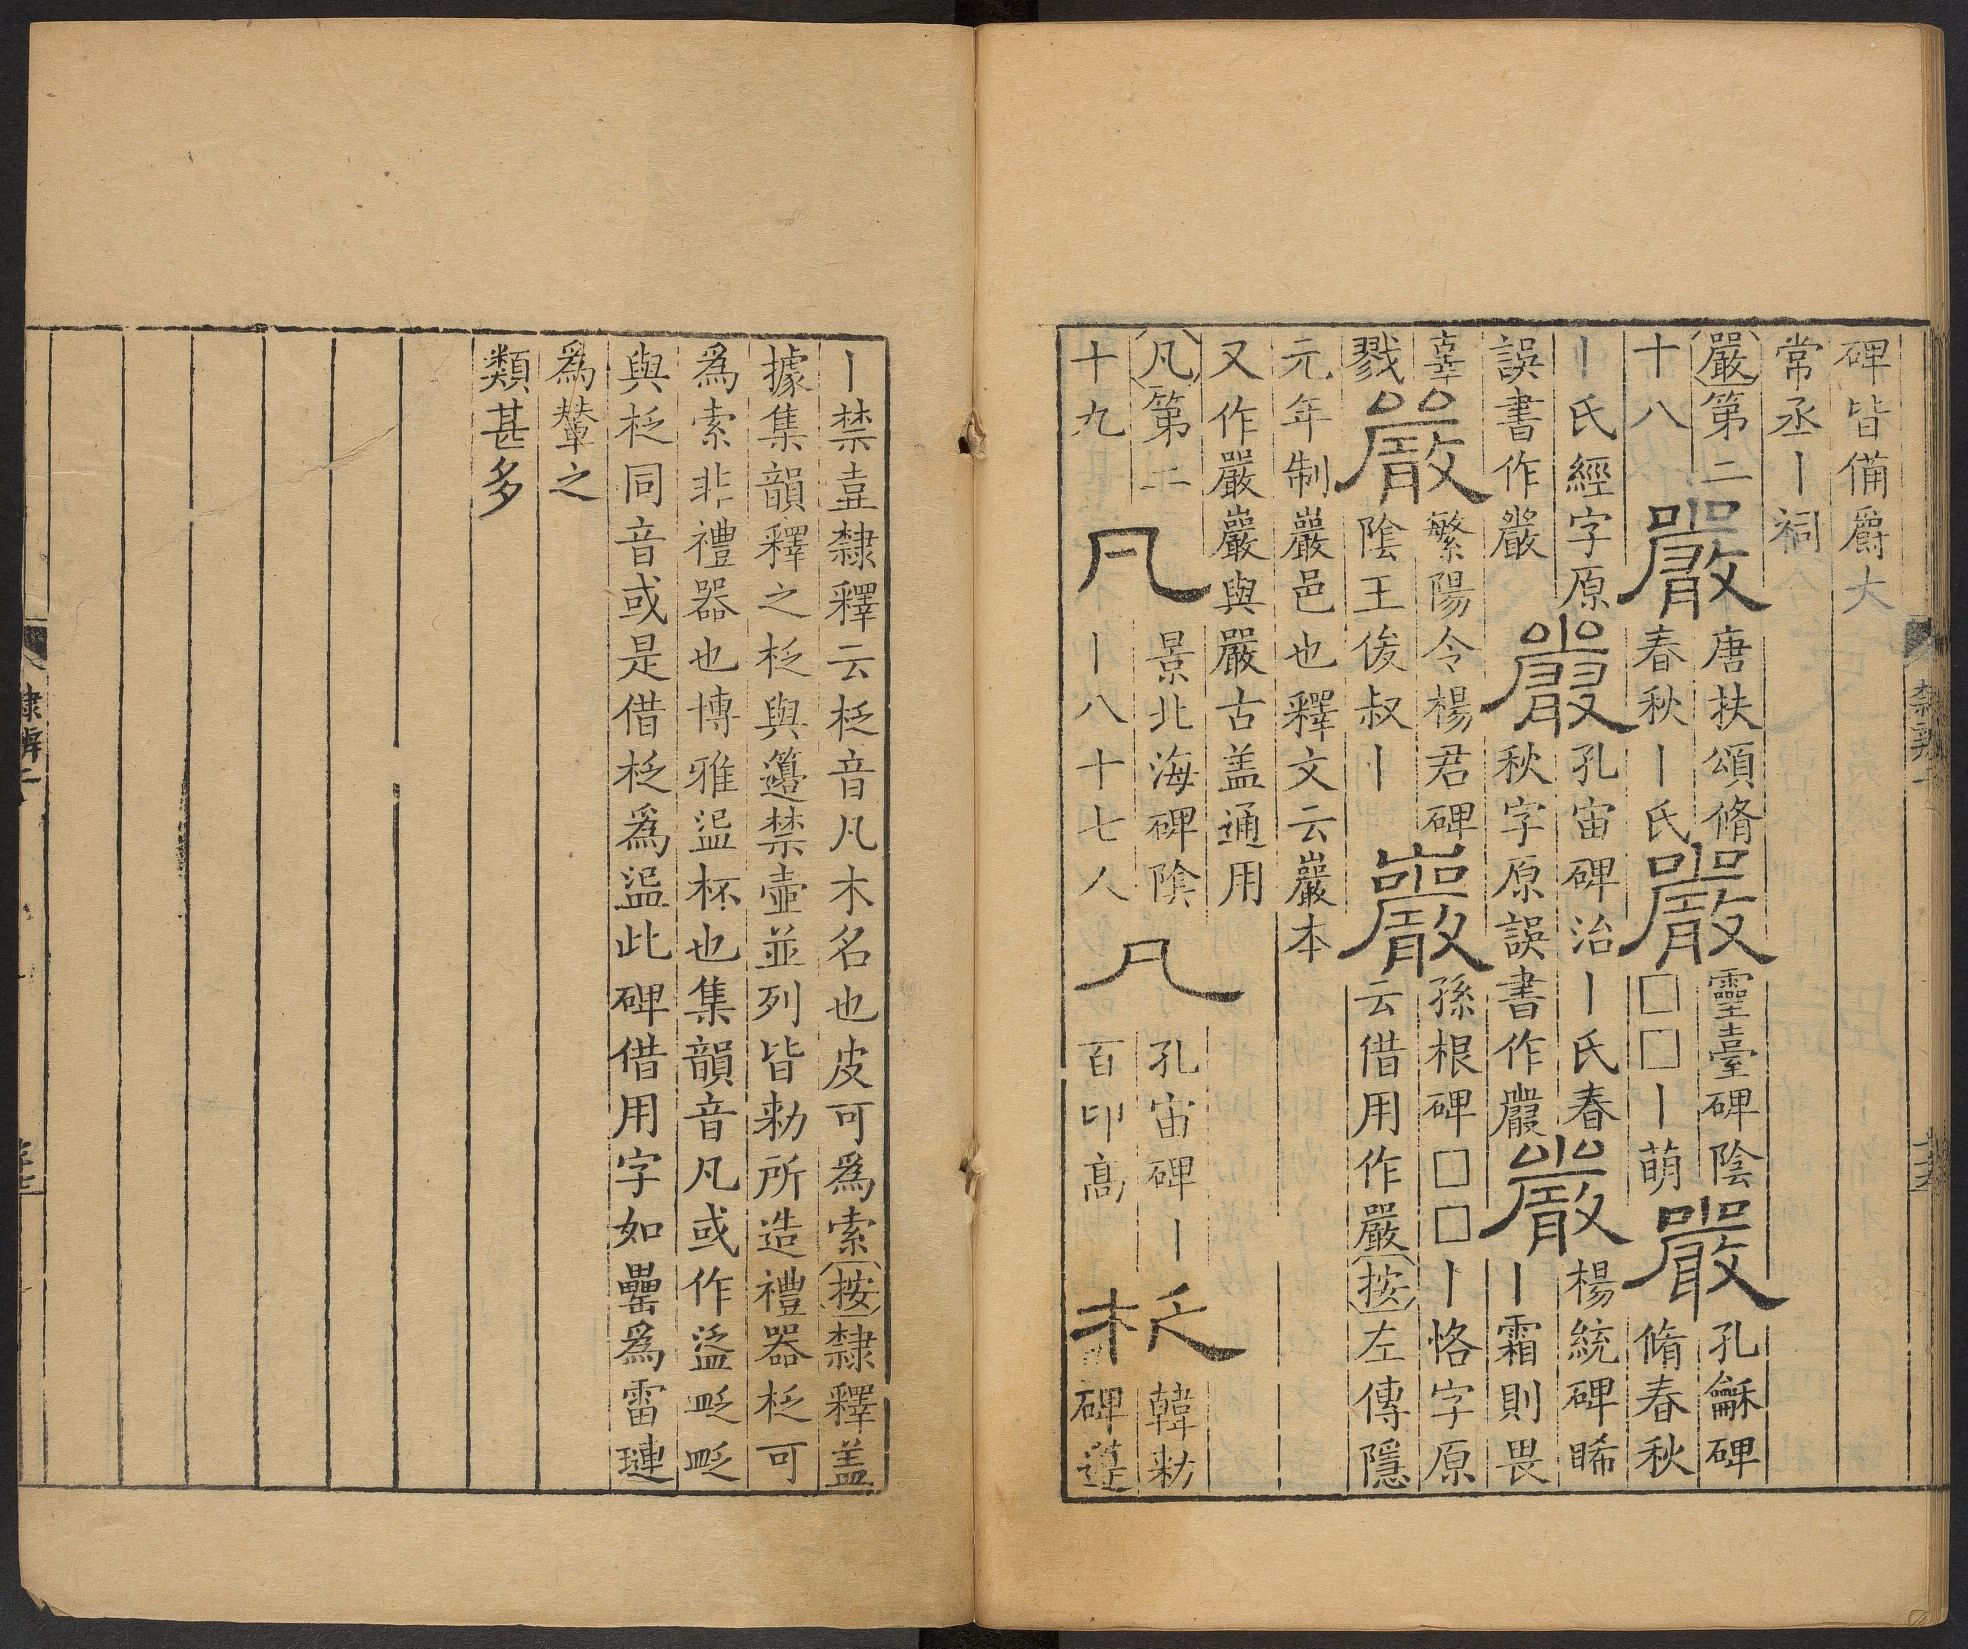 碑皆備爵大
常丞丨祠
嚴第二
十八
嚴
唐扶頌脩
春秋丨氏
嚴
靈臺碑陰
□□丨萌
嚴
孔龢碑
脩春秋
丨氏經字原
誤書作嚴
嚴
孔宙碑治丨氏春
秋字原誤書作嚴
嚴
楊統碑睎
丨霜則畏
辜
戮
嚴
繁陽令楊君碑
陰王俊叔丨
巖
孫根碑□□丨恪字原
云借用作嚴按左傳隱
元年制巖邑也釋文云巖本
又作嚴巖與嚴古盖通用
凡第二
十九
凡
景北海碑陰
丨八十七八
凡
孔宙碑丨
百卬高
柉
韓勑
碑籩
丨禁壴隸釋云柉音凡木名也皮可爲索按隸釋盖
據集韻釋之柉與籩禁壺並列皆勑所造禮器柉可
爲索非禮器也博雅杯也集韻音凡或作
與柉同音或是借柉爲此碑借用字如罍爲雷璉
爲輦之
類甚多
隸辨二